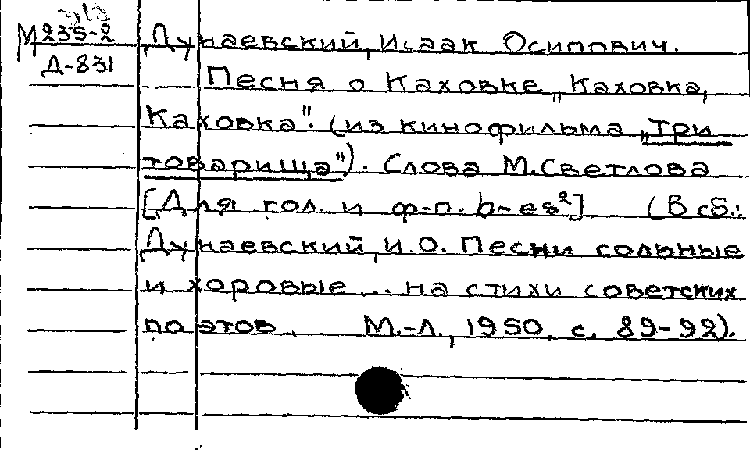 М235-2 Дунаевский, Исаак Осипович.
Д-831 Песня о Каховке „Каховка,
Каховка". (из кинофильма „Три
товарища"). Слова М.Светлова
[Для гол. и ф-п. b-as²] (В сб.:
Дунаевский, И.О. Песни сольные
и хоровые... на стихи советских
поэтов. М.-Л., 1950, с. 89-92).